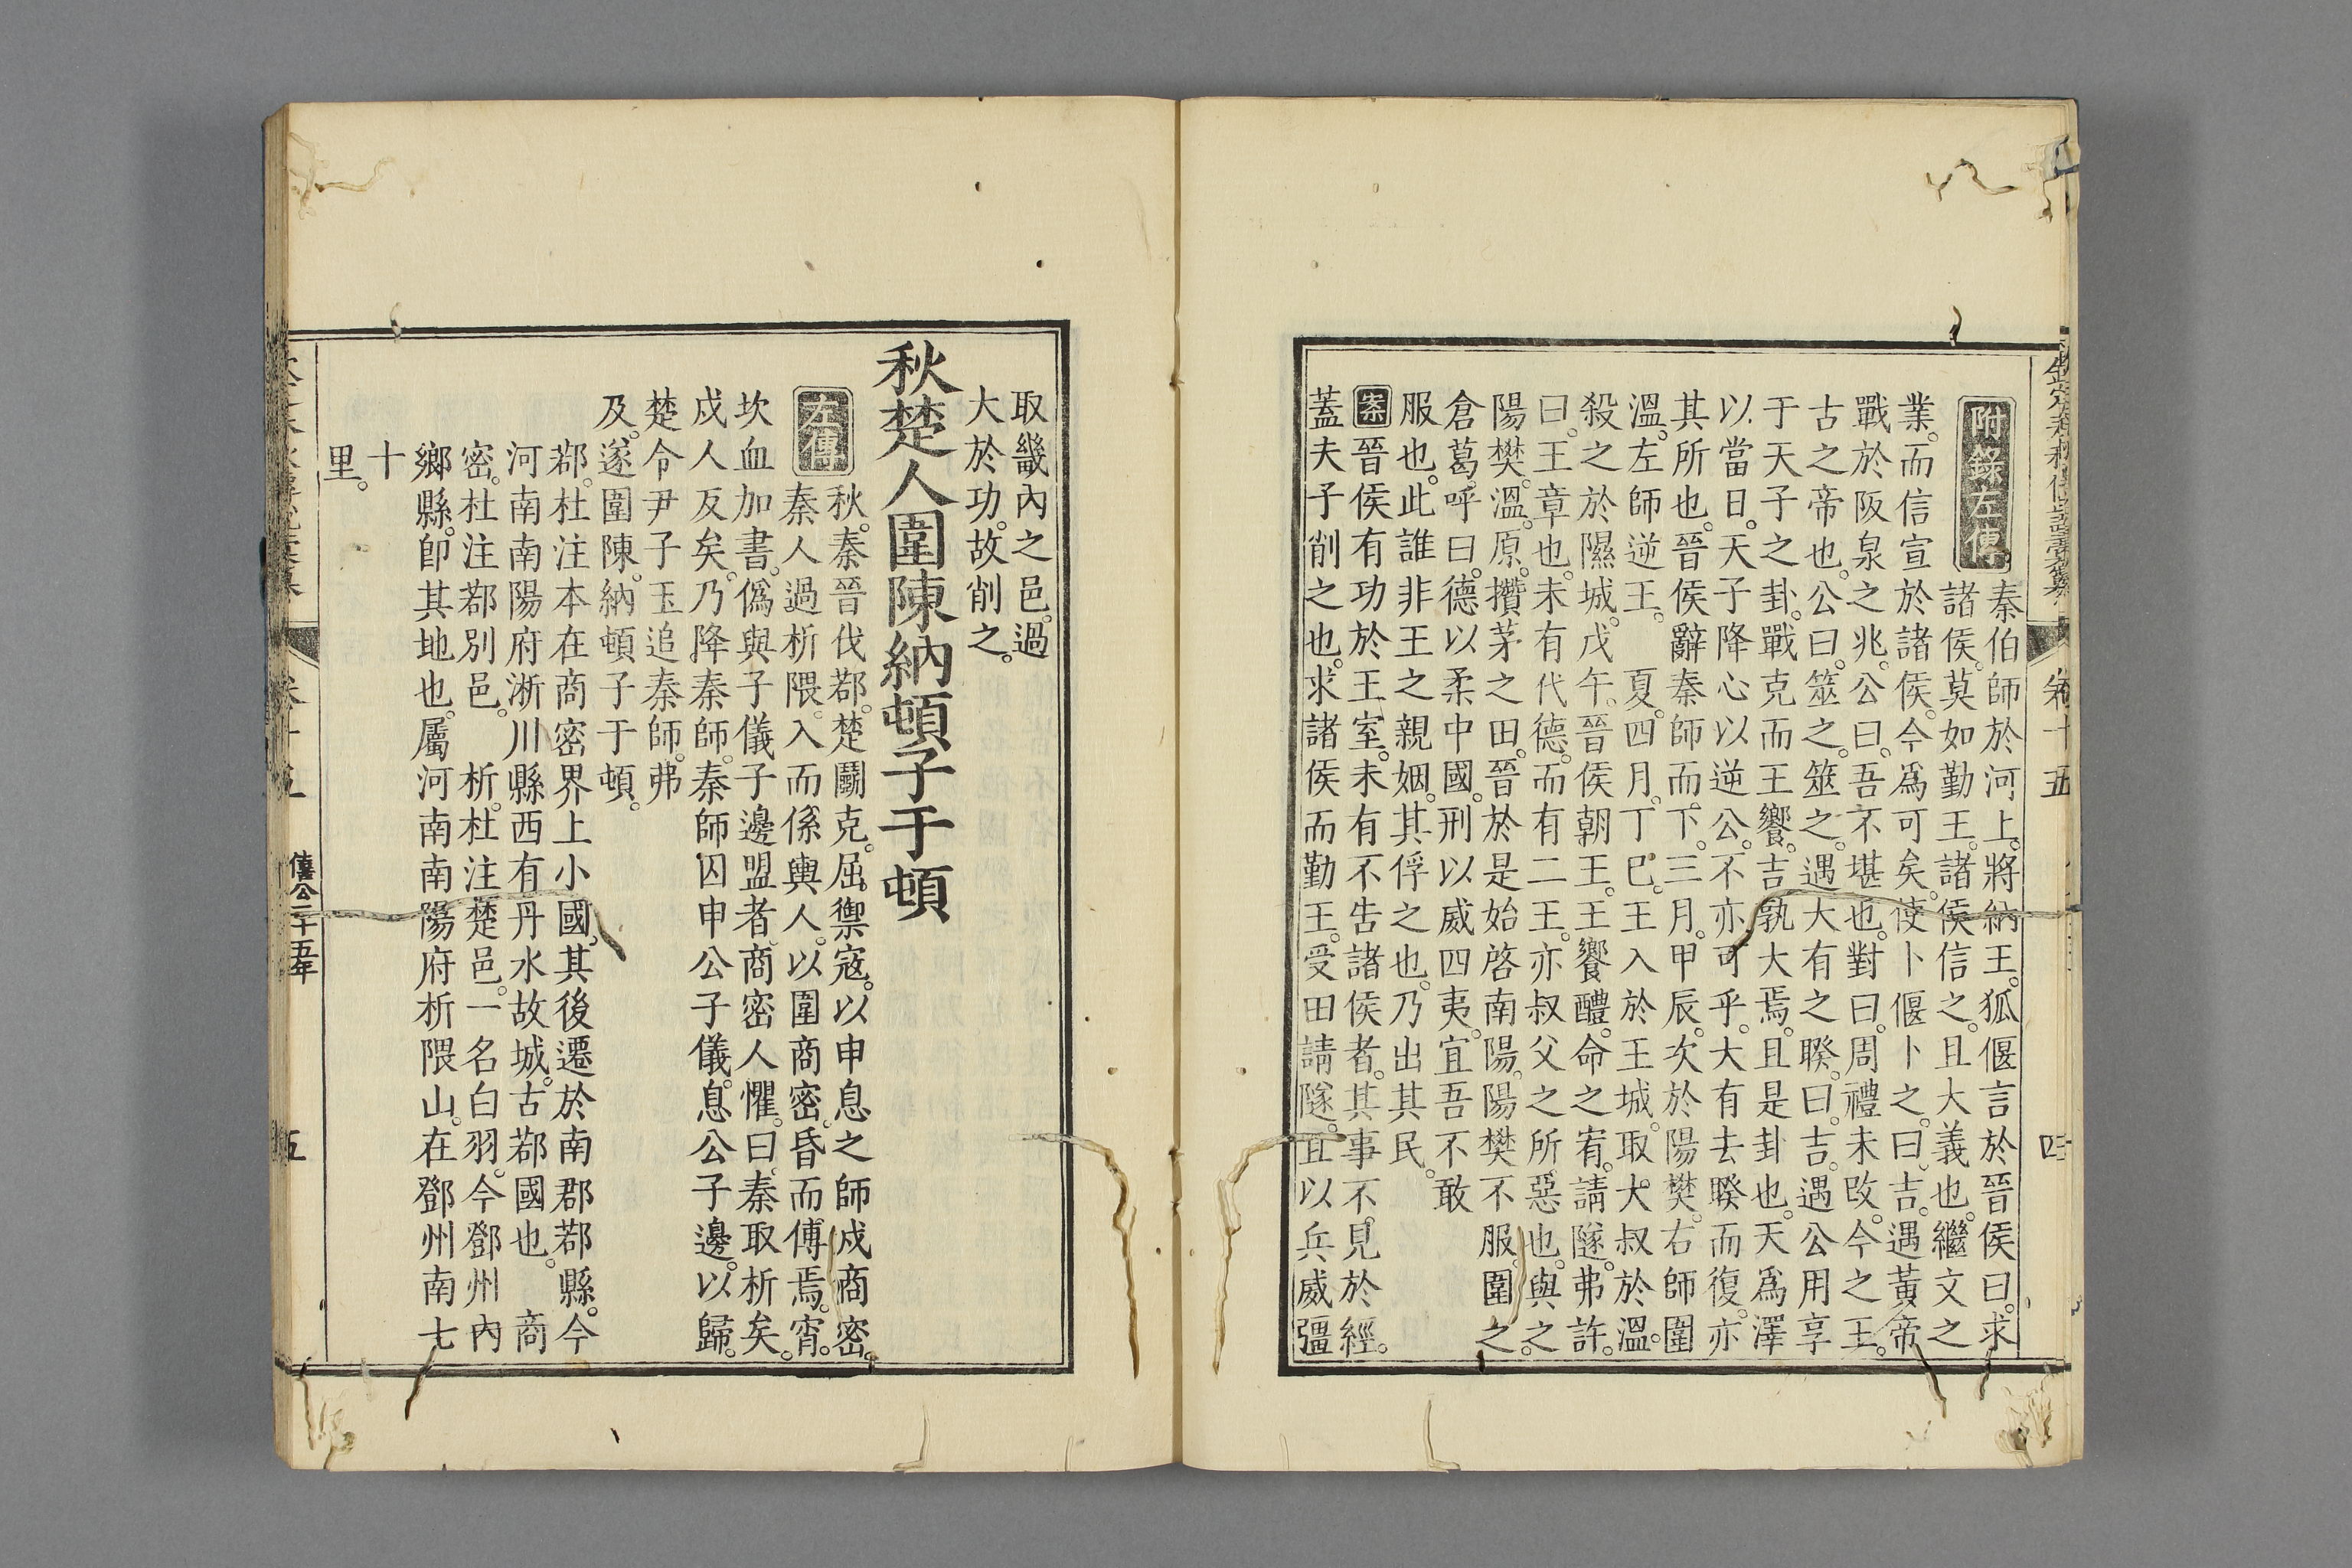 欽定春秋傳說彙纂 卷十五 四
附錄左傳
秦伯師於河上。將納王。狐偃言於晉侯曰。求
諸侯。莫如勤王。諸侯信之。且大義也。繼文之
業。而信宣於諸侯。今為可矣。使卜偃卜之。曰。吉。遇黃帝
戰於阪泉之兆。公曰。吾不堪也。對曰。周禮未改。今之王。
古之帝也。公曰。筮之。筮之。遇大有之睽。曰。吉。遇公用享
于天子之卦。戰克而王饗。吉孰大焉。且是卦也。天為澤
以當日。天子降心以逆公。不亦可乎。大有去睽而復。亦
其所也。晉侯辭秦師而下。三月。甲辰。次於陽樊。右師圍
溫。左師逆王。夏。四月。丁巳。王入於王城。取大叔於溫。
殺之於隰城。戊午。晉侯朝王。王饗醴。命之宥。請隧。弗許。
曰。王章也。未有代德。而有二王。亦叔父之所惡也。與之
陽樊。溫。原。攢茅之田。晉於是始啓南陽。陽樊不服。圍之。
倉葛呼曰。德以柔中國。刑以威四夷。宜吾不敢
服也。此誰非王之親姻。其俘之也。乃出其民。
案晉侯有功於王室。未有不告諸侯者。其事不見於經。
蓋夫子削之也。求諸侯而勤王。受田請隧。且以兵威彊
取畿內之邑。過
大於功。故削之。
秋楚人圍陳納頓子于頓
左傳
秋。秦晉伐鄀。楚鬭克。屈禦寇。以申息之師戍商密。
秦人過析隈。入而係輿人。以圍商密。昏而傅焉。宵。
坎血加書。偽與子儀子邊盟者。商密人懼。曰。秦取析矣。
戍人反矣。乃降秦師。秦師囚申公子儀。息公子邊。以歸。
楚令尹子玉追秦師。弗
及。遂圍陳。納頓子于頓。
鄀。杜注本在商密界上小國。其後遷於南郡鄀縣。今
河南南陽府淅川縣西有丹水故城。古鄀國也。 商
密。杜注鄀別邑。 析。杜注楚邑。一名白羽。今鄧州內
鄉縣。卽其地也。屬河南南陽府析隈山。在鄧州南七
十
里。
僖公二十五年 五